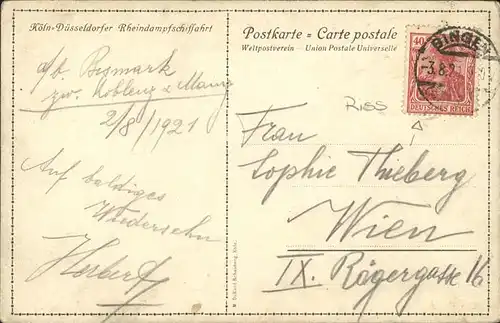 Köln-Düsseldorfer Rheindampfschiffahrt
a/b. Bismark
zw. Koblenz & Mainz
2/8/1921
Auf baldiges
Wiedersehn
Herbert
Postkarte = Carte postale
Weltpostverein — Union Postale Universelle
40
DEUTSCHES REICH
BINGEN
-3.8.2
RISS
Frau
Sophie Thieberg
Wien
IX. Rögergasse 16